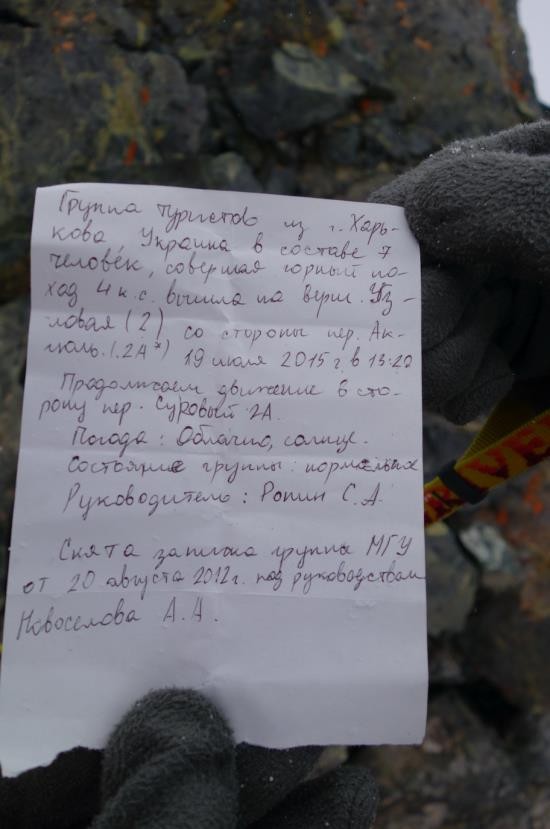 Группа туристов из г. Харь-
кова Украина в составе 7
человек, совершая горный по-
ход 4 к.с. вышла на верш. Уз-
ловая (2) со стороны пер. Ак-
тюль. (2А*) 19 июля 2015 г в 13:20
Продолжаем движение в сто-
рону пер. Суровый 2А.
Погода: Облачно, солнце.
Состояние группы: нормальное
Руководитель: Ронин С.А.
Снята записка группы МГУ
от 20 августа 2012г. под руководством
Новоселова А.А.